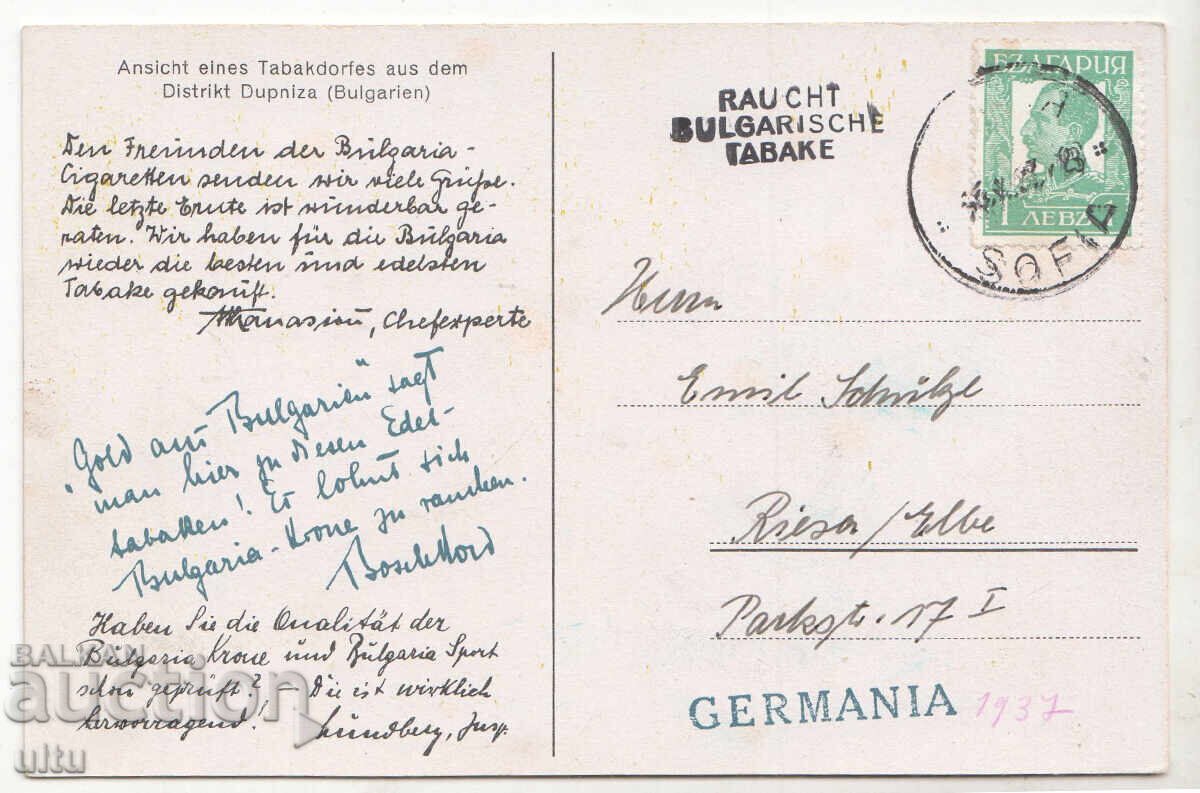 Ansicht eines Tabakdorfes aus dem
Distrikt Dupniza (Bulgarien)
Den Freunden der Bulgaria-
Cigaretten senden wir viele Grüße.
Die letzte Ernte ist wunderbar ge-
raten. Wir haben für die Bulgaria
wieder die besten und edelsten
Tabake gekauft.
Athanasiou, Chefexperte
"Gold aus Bulgarien" sagt
man hier zu diesen Edel-
tabakken! Es lohnt sich
Bulgaria-Krone zu rauchen.
Haben Sie die Qualität der
Bulgaria Krone und Bulgaria Sport
schon geprüft? – Die ist wirklich
herworragend!
Lundberg, Insp.
RAUCHT
BULGARISCHE
TABAKE
БЪЛГАРИЯ
1 ЛЕВЪ
SOFIA
Herrn
Emil Schulze
Riesa/Elbe
Parkstr. 17 I
GERMANIA 1937
BALKAN
auction
ultu